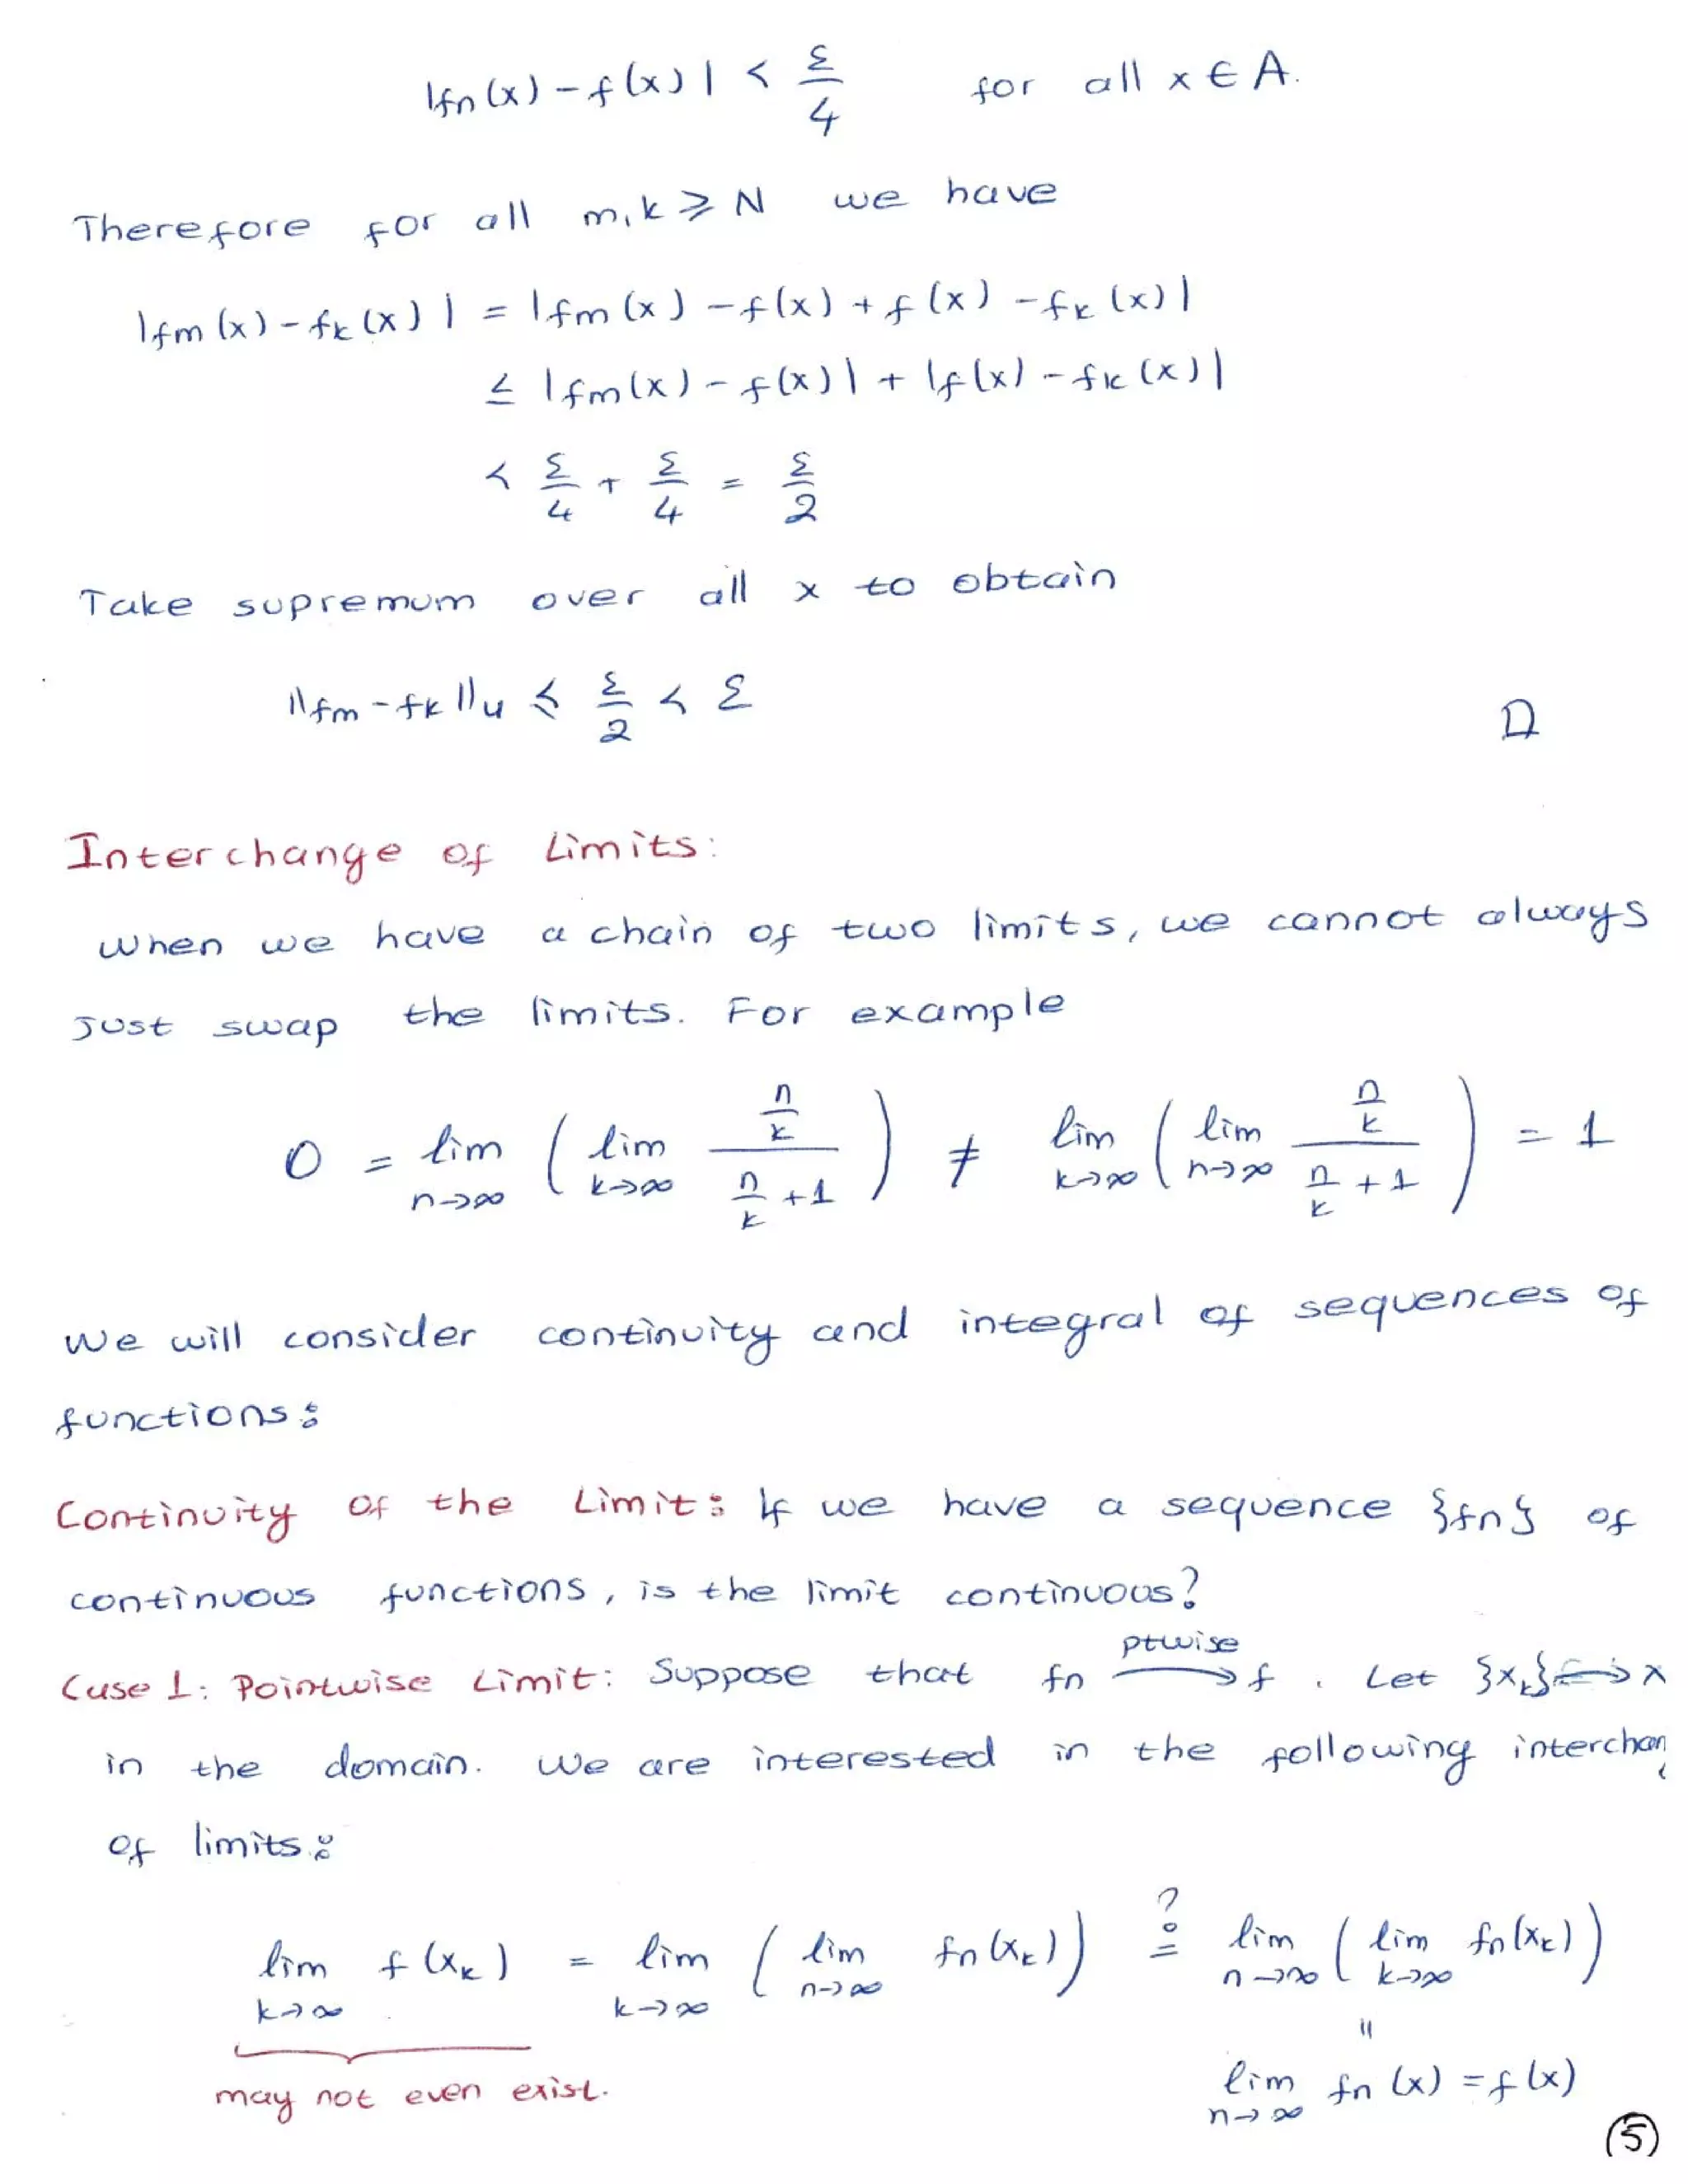 |fn(x) - f(x)| < ε/4 for all x ∈ A.
Therefore for all m,k ⩾ N we have
|fm(x) - fk(x)| = |fm(x) - f(x) + f(x) - fk(x)|
≤ |fm(x) - f(x)| + |f(x) - fk(x)|
< ε/4 + ε/4 = ε/2
Take supremum over all x to obtain
||fm - fk||u ⩽ ε/2 < ε □
Interchange of Limits:
When we have a chain of two limits, we cannot always
just swap the limits. For example
0 = lim n→∞ ( lim k→∞ (n/k)/(n/k + 1) ) ≠ lim k→∞ ( lim n→∞ (n/k)/(n/k + 1) ) = 1
We will consider continuity and integral of sequences of
functions:
Continuity of the Limit: If we have a sequence {fn} of
continuous functions, is the limit continuous?
Case 1: Pointwise Limit: Suppose that fn ptwise→ f. Let {xk} → x
in the domain. We are interested in the following interchan
of limits:
lim k→∞ f(xk) = lim k→∞ ( lim n→∞ fn(xk) ) ?= lim n→∞ ( lim k→∞ fn(xk) )
=
may not even exist. lim n→∞ fn(x) = f(x)
5